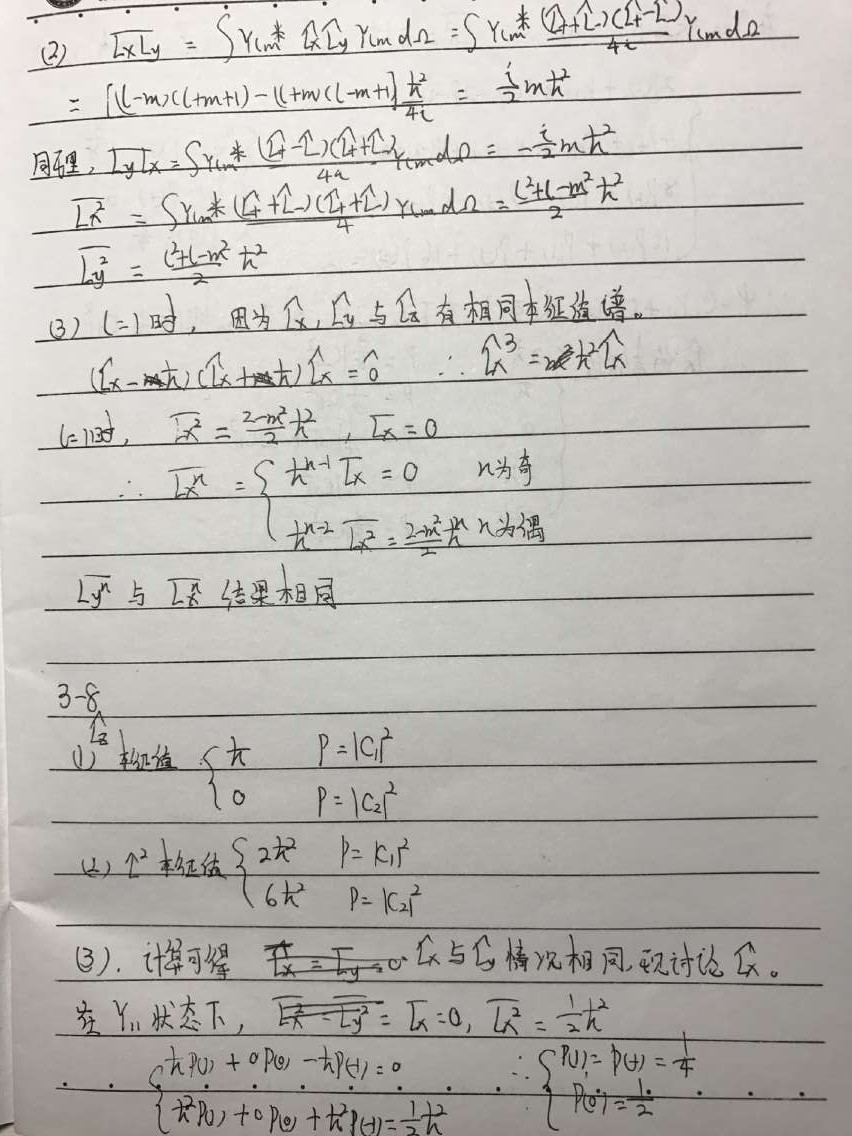 (2) \overline{L_xL_y} = ∫Y_{lm}^* \hat{L}_x\hat{L}_y Y_{lm}dΩ = ∫Y_{lm}^* \frac{(\hat{L}_++\hat{L}_-)(\hat{L}_+-\hat{L}_-)}{4i} Y_{lm}dΩ
= [(l-m)(l+m+1)-(l+m)(l-m+1)]\frac{ħ^2}{4i} = \frac{i}{2}mħ^2
同理, \overline{L_yL_x} = ∫Y_{lm}^* \frac{(\hat{L}_+-\hat{L}_-)(\hat{L}_++\hat{L}_-)}{4i} Y_{lm}dΩ = -\frac{i}{2}mħ^2
\overline{L_x^2} = ∫Y_{lm}^* \frac{(\hat{L}_++\hat{L}_-)(\hat{L}_++\hat{L}_-)}{4} Y_{lm}dΩ = \frac{l^2+l-m^2}{2}ħ^2
\overline{L_y^2} = \frac{l^2+l-m^2}{2}ħ^2
(3) l=1时, 因为\hat{L}_x, \hat{L}_y与\hat{L}_z有相同本征值谱。
(\hat{L}_x-ħ)(\hat{L}_x+ħ)\hat{L}_x=\hat{0} ∴ \hat{L}_x^3=ħ^2\hat{L}_x
l=1时, \overline{L_x^2} = \frac{2-m^2}{2}ħ^2, \overline{L_x}=0
∴ \overline{L_x^n} = { ħ^{n-1}\overline{L_x}=0 n为奇
ħ^{n-2}\overline{L_x^2}=\frac{2-m^2}{2}ħ^n n为偶
\overline{L_y^n}与\overline{L_x^n}结果相同
3-8
(1) \hat{L}_z本征值 { ħ P=|C_1|^2
0 P=|C_2|^2
(2) \hat{L}^2本征值 { 2ħ^2 P=|C_1|^2
6ħ^2 P=|C_2|^2
(3). 计算可得 \hat{L}_x与\hat{L}_y情况相同,现讨论\hat{L}_x。
在Y_{11}状态下, \overline{L_x}=0, \overline{L_x^2}=\frac{1}{2}ħ^2
{ ħP(1)+0P(0)-ħP(-1)=0 ∴ { P(1)=P(-1)=\frac{1}{4}
ħ^2P(1)+0P(0)+ħ^2P(-1)=\frac{1}{2}ħ^2 P(0)=\frac{1}{2}